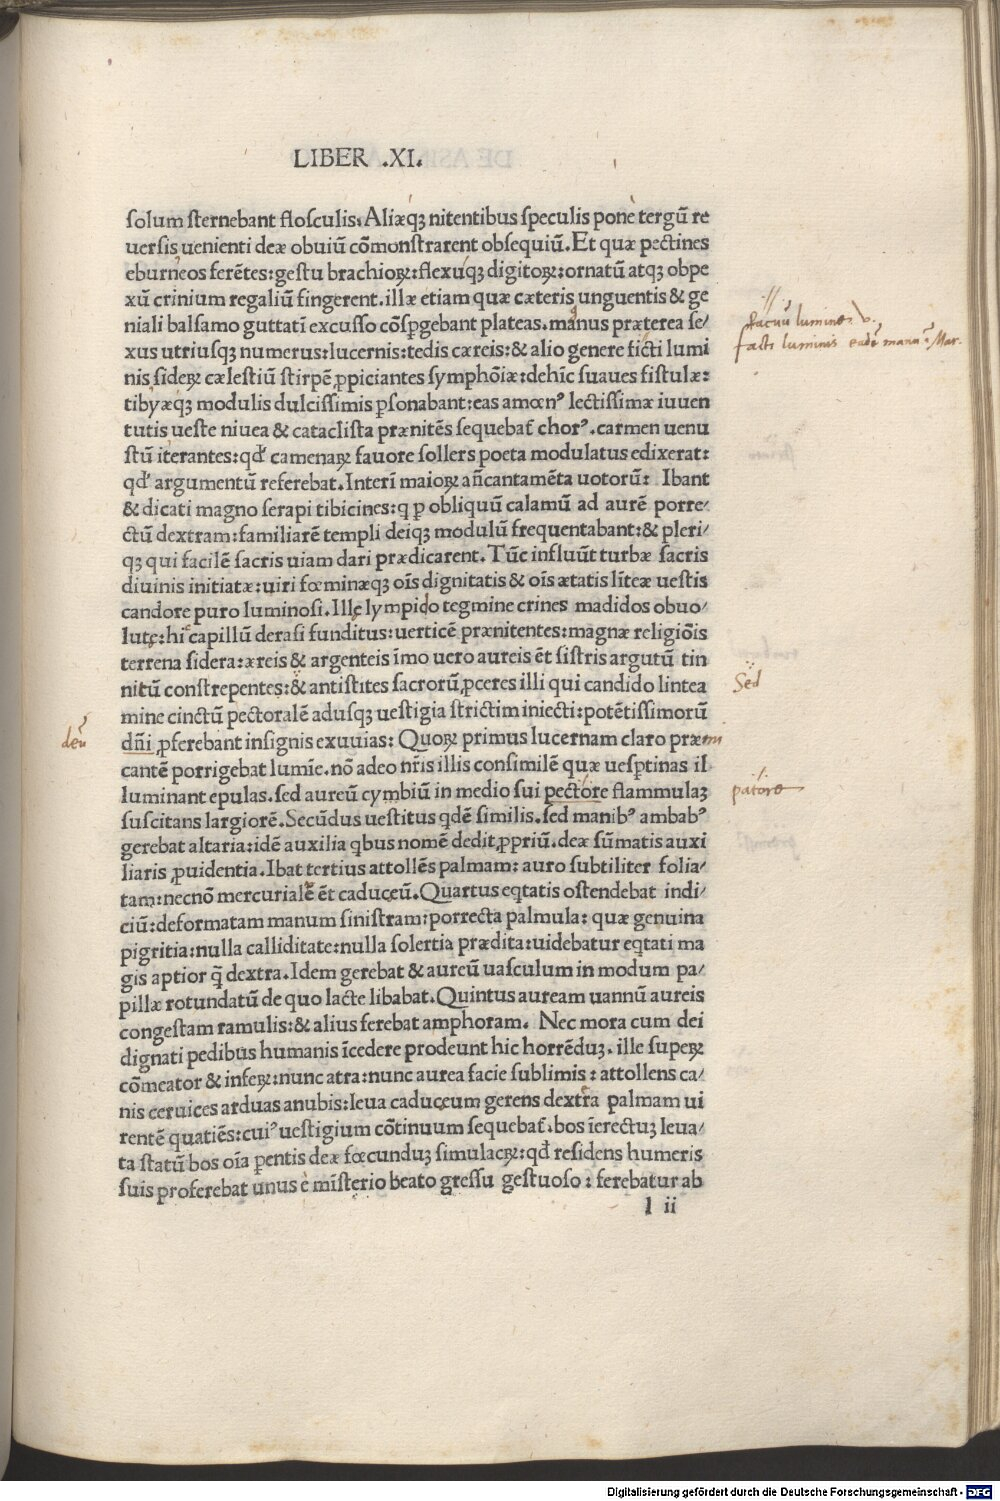 LIBER .XI.
solum sternebant flosculis. Aliæqꝫ nitentibus speculis pone tergū re
uersis uenienti deæ obuiū cōmonstrarent obsequiū. Et quæ pectines
eburneos ferētes: gestu brachioꝝ: flexuqꝫ digitoꝝ: ornatū atqꝫ obpe
xū crinium regaliū fingerent. illæ etiam quæ cæteris unguentis & ge
niali balsamo guttatī excusso cōsꝑgebant plateas. manus præterea se/
xus utriusqꝫ numerus: lucernis: tedis cæreis: & alio genere ficti lumi
nis sideꝝ cælestiū stirpē ꝓpiciantes symphōiæ: dehīc suaues fistulæ:
tibyæqꝫ modulis dulcissimis ꝑsonabant: eas amœnꝰ lectissimæ iuuen
tutis ueste niuea & cataclista prænitēs sequebat̄ chorꝰ. carmen uenu
stū iterantes: qđ camenaꝝ fauore sollers poeta modulatus edixerat:
qđ argumentū referebat. Interī maioꝝ an̄cantamēta uotorū: Ibant
& dicati magno serapi tibicines: q ꝑ obliquū calamū ad aurē porre/
ctū dextram: familiarē templi deiqꝫ modulū frequentabant: & pleri/
qꝫ qui facilē sacris uiam dari prædicarent. Tūc influūt turbæ sacris
diuinis initiatæ: uiri fœminæqꝫ oīs dignitatis & oīs ætatis līteæ uestis
candore puro luminosi. Illę lympido tegmine crines madidos obuo/
lutę: hi capillū derasi funditus: uerticē prænitentes: magnæ religiōis
terrena sidera: æreis & argenteis īmo uero aureis ēt sistris argutū tin
nitū constrepentes: & antistites sacrorū ꝓceres illi qui candido lintea
mine cinctū pectoralē adusqꝫ uestigia strictim iniecti: potētissimorū
dn̄i ꝓferebant insignis exuuias: Quoꝝ primus lucernam claro præmi
cantē porrigebat lumīe. nō adeo nr̄is illis consimilē quæ uesꝑtinas il
luminant epulas. sed aureū cymbiū in medio sui pectore flammulaꝫ
suscitans largiorē. Secūdus uestitus qdē similis. sed manibꝰ ambabꝰ
gerebat altaria: idē auxilia qbus nomē dedit ꝓpriū. deæ sūmatis auxi
liaris ꝓuidentia. Ibat tertius attollēs palmam: auro subtiliter folia/
tam: necnō mercurialē ēt caduceū. Quartus eqtatis ostendebat indi/
ciū: deformatam manum sinistram: porrecta palmula: quæ genuina
pigritia: nulla calliditate: nulla solertia prædita: uidebatur eqtati ma
gis aptior q̄ dextra. Idem gerebat & aureū uasculum in modum pa/
pillæ rotundatū de quo lacte libabat. Quintus auream uannū aureis
congestam ramulis: & alius ferebat amphoram. Nec mora cum dei
dignati pedibus humanis īcedere prodeunt hic horrēduꝫ. ille supeꝝ
cōmeator & infeꝝ: nunc atra: nunc aurea facie sublimis: attollens ca/
nis ceruices arduas anubis: leua caduceum gerens dextra palmam ui
rentē quatiēs: cuiꝰ uestigium cōtinuum sequebat̄. bos īerectuꝫ leua/
ta statū bos oīa ꝑentis deæ fœcunduꝫ simulacꝝ: qđ residens humeris
suis proferebat unus e mīsterio beato gressu gestuoso: ferebatur ab
l ii
facuū lumine. v.
facti luminis eadē manū. Mar.
Sed
deū
patore
Digitalisierung gefördert durch die Deutsche Forschungsgemeinschaft - DFG